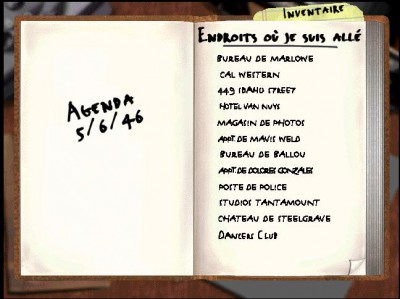 INVENTAIRE
AGENDA
5/6/46
ENDROITS OÙ JE SUIS ALLÉ
BUREAU DE MARLOWE
CAL WESTERN
449 IDAHO STREET
HOTEL VAN NUYS
MAGASIN DE PHOTOS
APPT. DE MAVIS WELD
BUREAU DE BALLOU
APPT. DE DOLORES GONZALES
POSTE DE POLICE
STUDIOS TANTAMOUNT
CHATEAU DE STEELGRAVE
DANCERS CLUB